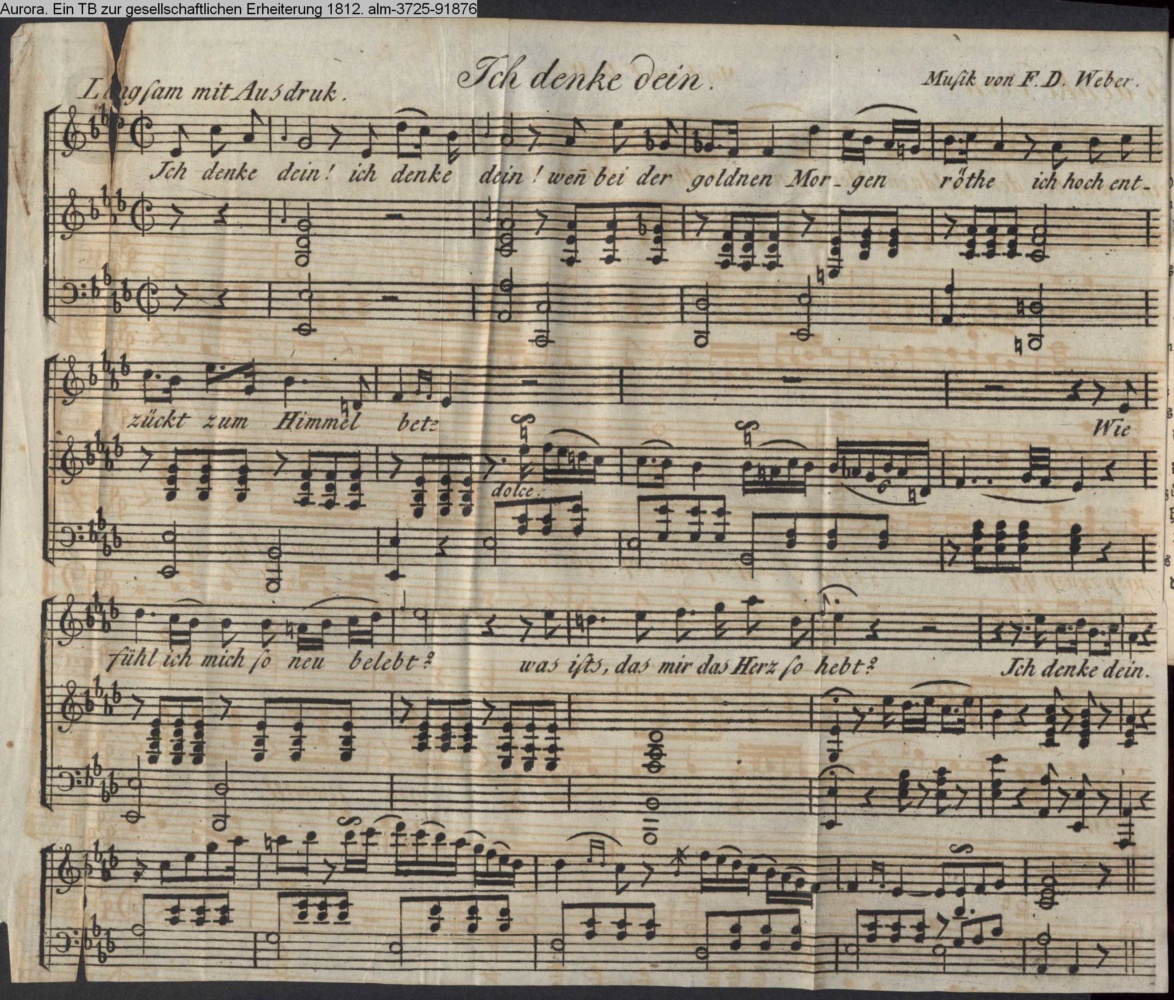 Aurora. Ein TB zur gesellschaftlichen Erheiterung 1812. alm-3725-91876
Ich denke dein.
Langſam mit Ausdruk.
Muſik von F. D. Weber.
Ich denke dein! ich denke dein! weñ bei der goldnen Mor- gen röthe ich hoch ent-
zückt zum Himmel bet:
Wie
dolce.
6
fühl ich mich ſo neu belebt? was iſts, das mir das Herz ſo hebt? Ich denke dein.